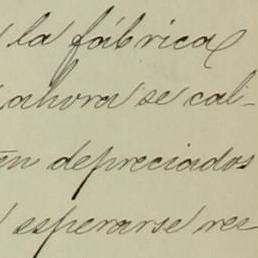 la fábrica
ahora se cali-
en depreciados
esperarse ree